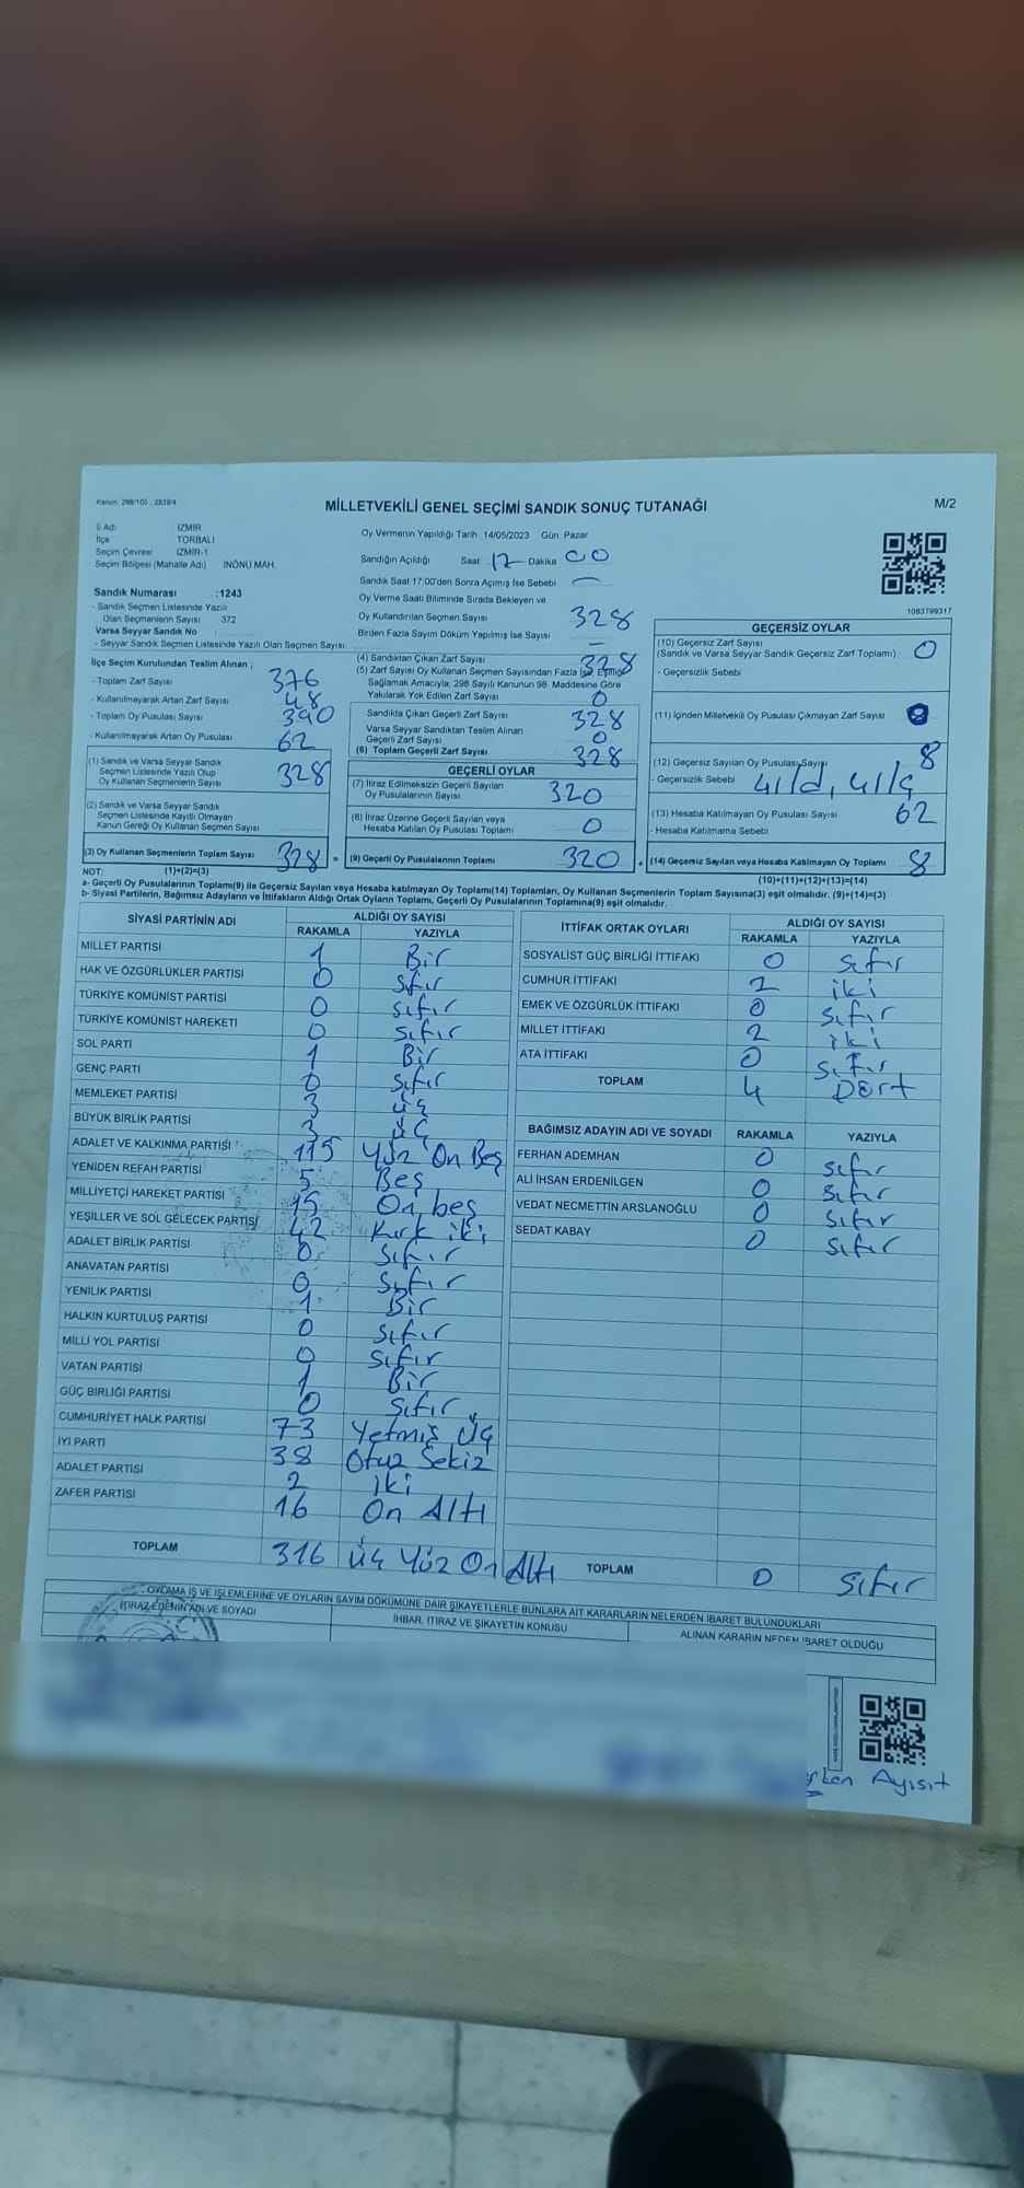 MİLLETVEKİLİ GENEL SEÇİMİ SANDIK SONUÇ TUTANAĞI
M/2
İl Adı İZMİR
İlçe TORBALI
Seçim Çevresi İZMİR-1
Seçim Bölgesi (Mahalle Adı) İNÖNÜ MAH.
Sandık Numarası :1243
- Sandık Seçmen Listesinde Yazılı
Olan Seçmenlerin Sayısı 372
Varsa Seyyar Sandık No
- Seyyar Sandık Seçmen Listesinde Yazılı Olan Seçmen Sayısı
İlçe Seçim Kurulundan Teslim Alınan ;
- Toplam Zarf Sayısı 376
- Kullanılmayarak Artan Zarf Sayısı 48
- Toplam Oy Pusulası Sayısı 390
- Kullanılmayarak Artan Oy Pusulası 62
(1) Sandık ve Varsa Seyyar Sandık
Seçmen Listesinde Yazılı Olup
Oy Kullanan Seçmenlerin Sayısı 328
(2) Sandık ve Varsa Seyyar Sandık
Seçmen Listesinde Kayıtlı Olmayan
Kanun Gereği Oy Kullanan Seçmen Sayısı
(3) Oy Kullanan Seçmenlerin Toplam Sayısı 328 =
Oy Vermenin Yapıldığı Tarih 14/05/2023 Gün Pazar
Sandığın Açıldığı Saat 17 Dakika 00
Sandık Saat 17:00'den Sonra Açılmış İse Sebebi —
Oy Verme Saati Bitiminde Sırada Bekleyen ve
Oy Kullandırılan Seçmen Sayısı 328
Birden Fazla Sayım Döküm Yapılmış İse Sayısı –
(4) Sandıktan Çıkan Zarf Sayısı 328
(5) Zarf Sayısı Oy Kullanan Seçmen Sayısından Fazla İse Eşitliği
Sağlamak Amacıyla, 298 Sayılı Kanunun 98. Maddesine Göre
Yakılarak Yok Edilen Zarf Sayısı 0
Sandıkta Çıkan Geçerli Zarf Sayısı 328
Varsa Seyyar Sandıktan Teslim Alınan
Geçerli Zarf Sayısı 0
(6) Toplam Geçerli Zarf Sayısı 328
GEÇERLİ OYLAR
(7) İtiraz Edilmeksizin Geçerli Sayılan
Oy Pusulalarının Sayısı 320
(8) İtiraz Üzerine Geçerli Sayılan veya
Hesaba Katılan Oy Pusulası Toplamı 0
(9) Geçerli Oy Pusulalarının Toplamı 320 +
1083799317
GEÇERSİZ OYLAR
(10) Geçersiz Zarf Sayısı
(Sandık ve Varsa Seyyar Sandık Geçersiz Zarf Toplamı) 0
- Geçersizlik Sebebi
(11) İçinden Milletvekili Oy Pusulası Çıkmayan Zarf Sayısı
(12) Geçersiz Sayılan Oy Pusulası Sayısı 8
- Geçersizlik Sebebi 41/d, 41/ç
(13) Hesaba Katılmayan Oy Pusulası Sayısı 62
- Hesaba Katılmama Sebebi
(14) Geçersiz Sayılan veya Hesaba Katılmayan Oy Toplamı 8
NOT: (1)+(2)=(3) (10)+(11)+(12)+(13)=(14)
a- Geçerli Oy Pusulalarının Toplamı(9) ile Geçersiz Sayılan veya Hesaba katılmayan Oy Toplamı(14) Toplamları, Oy Kullanan Seçmenlerin Toplam Sayısına(3) eşit olmalıdır. (9)+(14)=(3)
b- Siyasi Partilerin, Bağımsız Adayların ve İttifakların Aldığı Ortak Oyların Toplamı, Geçerli Oy Pusulalarının Toplamına(9) eşit olmalıdır.
SİYASİ PARTİNİN ADI ALDIĞI OY SAYISI
RAKAMLA YAZIYLA
MİLLET PARTİSİ 1 Bir
HAK VE ÖZGÜRLÜKLER PARTİSİ 0 Sıfır
TÜRKİYE KOMÜNİST PARTİSİ 0 Sıfır
TÜRKİYE KOMÜNİST HAREKETİ 0 Sıfır
SOL PARTİ 1 Bir
GENÇ PARTİ 0 Sıfır
MEMLEKET PARTİSİ 3 Üç
BÜYÜK BİRLİK PARTİSİ 3 Üç
ADALET VE KALKINMA PARTİSİ 115 Yüz On Beş
YENİDEN REFAH PARTİSİ 5 Beş
MİLLİYETÇİ HAREKET PARTİSİ 15 On beş
YEŞİLLER VE SOL GELECEK PARTİSİ 42 Kırk iki
ADALET BİRLİK PARTİSİ 0 Sıfır
ANAVATAN PARTİSİ 0 Sıfır
YENİLİK PARTİSİ 1 Bir
HALKIN KURTULUŞ PARTİSİ 0 Sıfır
MİLLİ YOL PARTİSİ 0 Sıfır
VATAN PARTİSİ 1 Bir
GÜÇ BİRLİĞİ PARTİSİ 0 Sıfır
CUMHURİYET HALK PARTİSİ 73 Yetmiş Üç
İYİ PARTİ 38 Otuz Sekiz
ADALET PARTİSİ 2 İki
ZAFER PARTİSİ 16 On Altı
TOPLAM 316 Üç Yüz On Altı
İTTİFAK ORTAK OYLARI ALDIĞI OY SAYISI
RAKAMLA YAZIYLA
SOSYALİST GÜÇ BİRLİĞİ İTTİFAKI 0 Sıfır
CUMHUR İTTİFAKI 2 iki
EMEK VE ÖZGÜRLÜK İTTİFAKI 0 Sıfır
MİLLET İTTİFAKI 2 iki
ATA İTTİFAKI 0 Sıfır
TOPLAM 4 Dört
BAĞIMSIZ ADAYIN ADI VE SOYADI RAKAMLA YAZIYLA
FERHAN ADEMHAN 0 Sıfır
ALİ İHSAN ERDENİLGEN 0 Sıfır
VEDAT NECMETTİN ARSLANOĞLU 0 Sıfır
SEDAT KABAY 0 Sıfır
TOPLAM 0 Sıfır
OYLAMA İŞ VE İŞLEMLERİNE VE OYLARIN SAYIM DÖKÜMÜNE DAİR ŞİKAYETLERLE BUNLARA AİT KARARLARIN NELERDEN İBARET BULUNDUKLARI
İTİRAZ EDENİN ADI VE SOYADI İHBAR, İTİRAZ VE ŞİKAYETİN KONUSU ALINAN KARARIN NEDEN İBARET OLDUĞU
Ayışıt